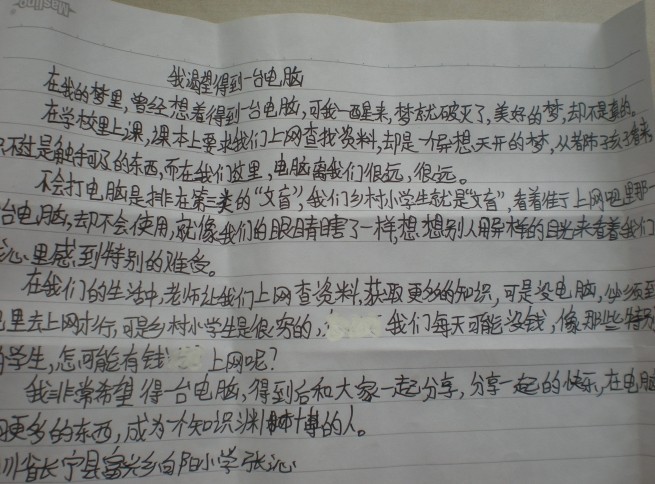 Masting
我渴望得到一台电脑
在我的梦里,曾经想着得到一台电脑,可我一醒来,梦就破灭了,美好的梦,却不是真的。
在学校里上课,课本上要求我们上网查找资料,却是一个异想天开的梦,从都市孩子看来,
只不过是触手可及的东西,而在我们这里,电脑离我们很远,很远。
不会打电脑是排在第三类的“文盲”,我们乡村小学生就是“文盲”,看着镇子上网吧里那一
台电脑,却不会使用,就像我们的眼睛瞎了一样,想想别人用异样的目光来看着我们
心里感到特别的难受。
在我们的生活中,老师让我们上网查资料,获取更多的知识,可是没电脑,必须到
吧里去上网才行,可是乡村小学生是很穷的, 我们每天可能没钱,像那些特别
的学生,怎可能有钱 上网呢?
我非常希望得一台电脑,得到后和大家一起分享,分享一起的快乐,在电脑
更多的东西,成为一个知识渊博的人。
川省长宁县富兴乡向阳小学 张沁